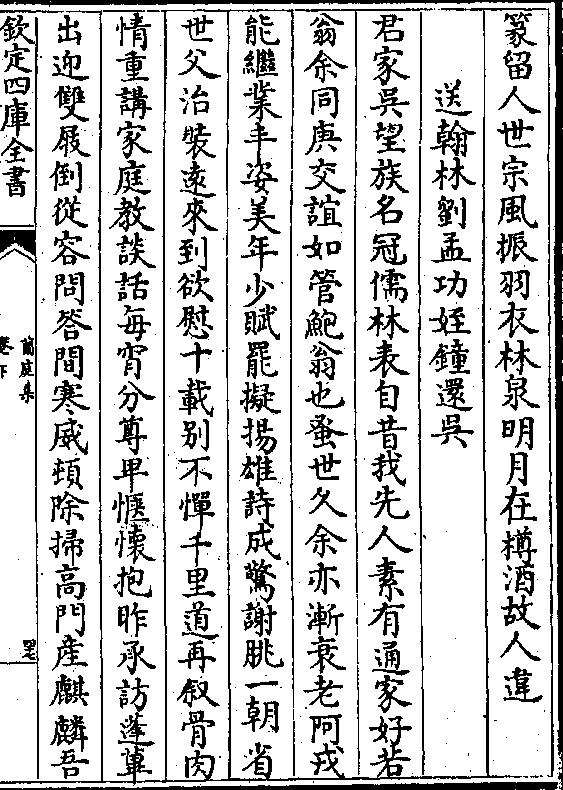 篆留人世宗風振羽衣林泉明月在樽酒故人違
送翰林劉孟功姪鐘還吳
君家吳望族名冠儒林表自昔我先人素有通家好若
翁余同庚交誼如管鮑翁也蚤世久余亦漸衰老阿戎
能繼業丰姿美年少賦罷擬揚雄詩成驚謝朓一朝省
世父治裝遠來到欲慰十載别不憚千里道再叙骨肉
情重講家庭教談話每宵分尊卑愜懷抱昨承訪蓬蓽
出迎雙屐倒從容問答間寒威頓除掃高門産麒麟吾
欽定四庫全書
蘭庭集
卷下